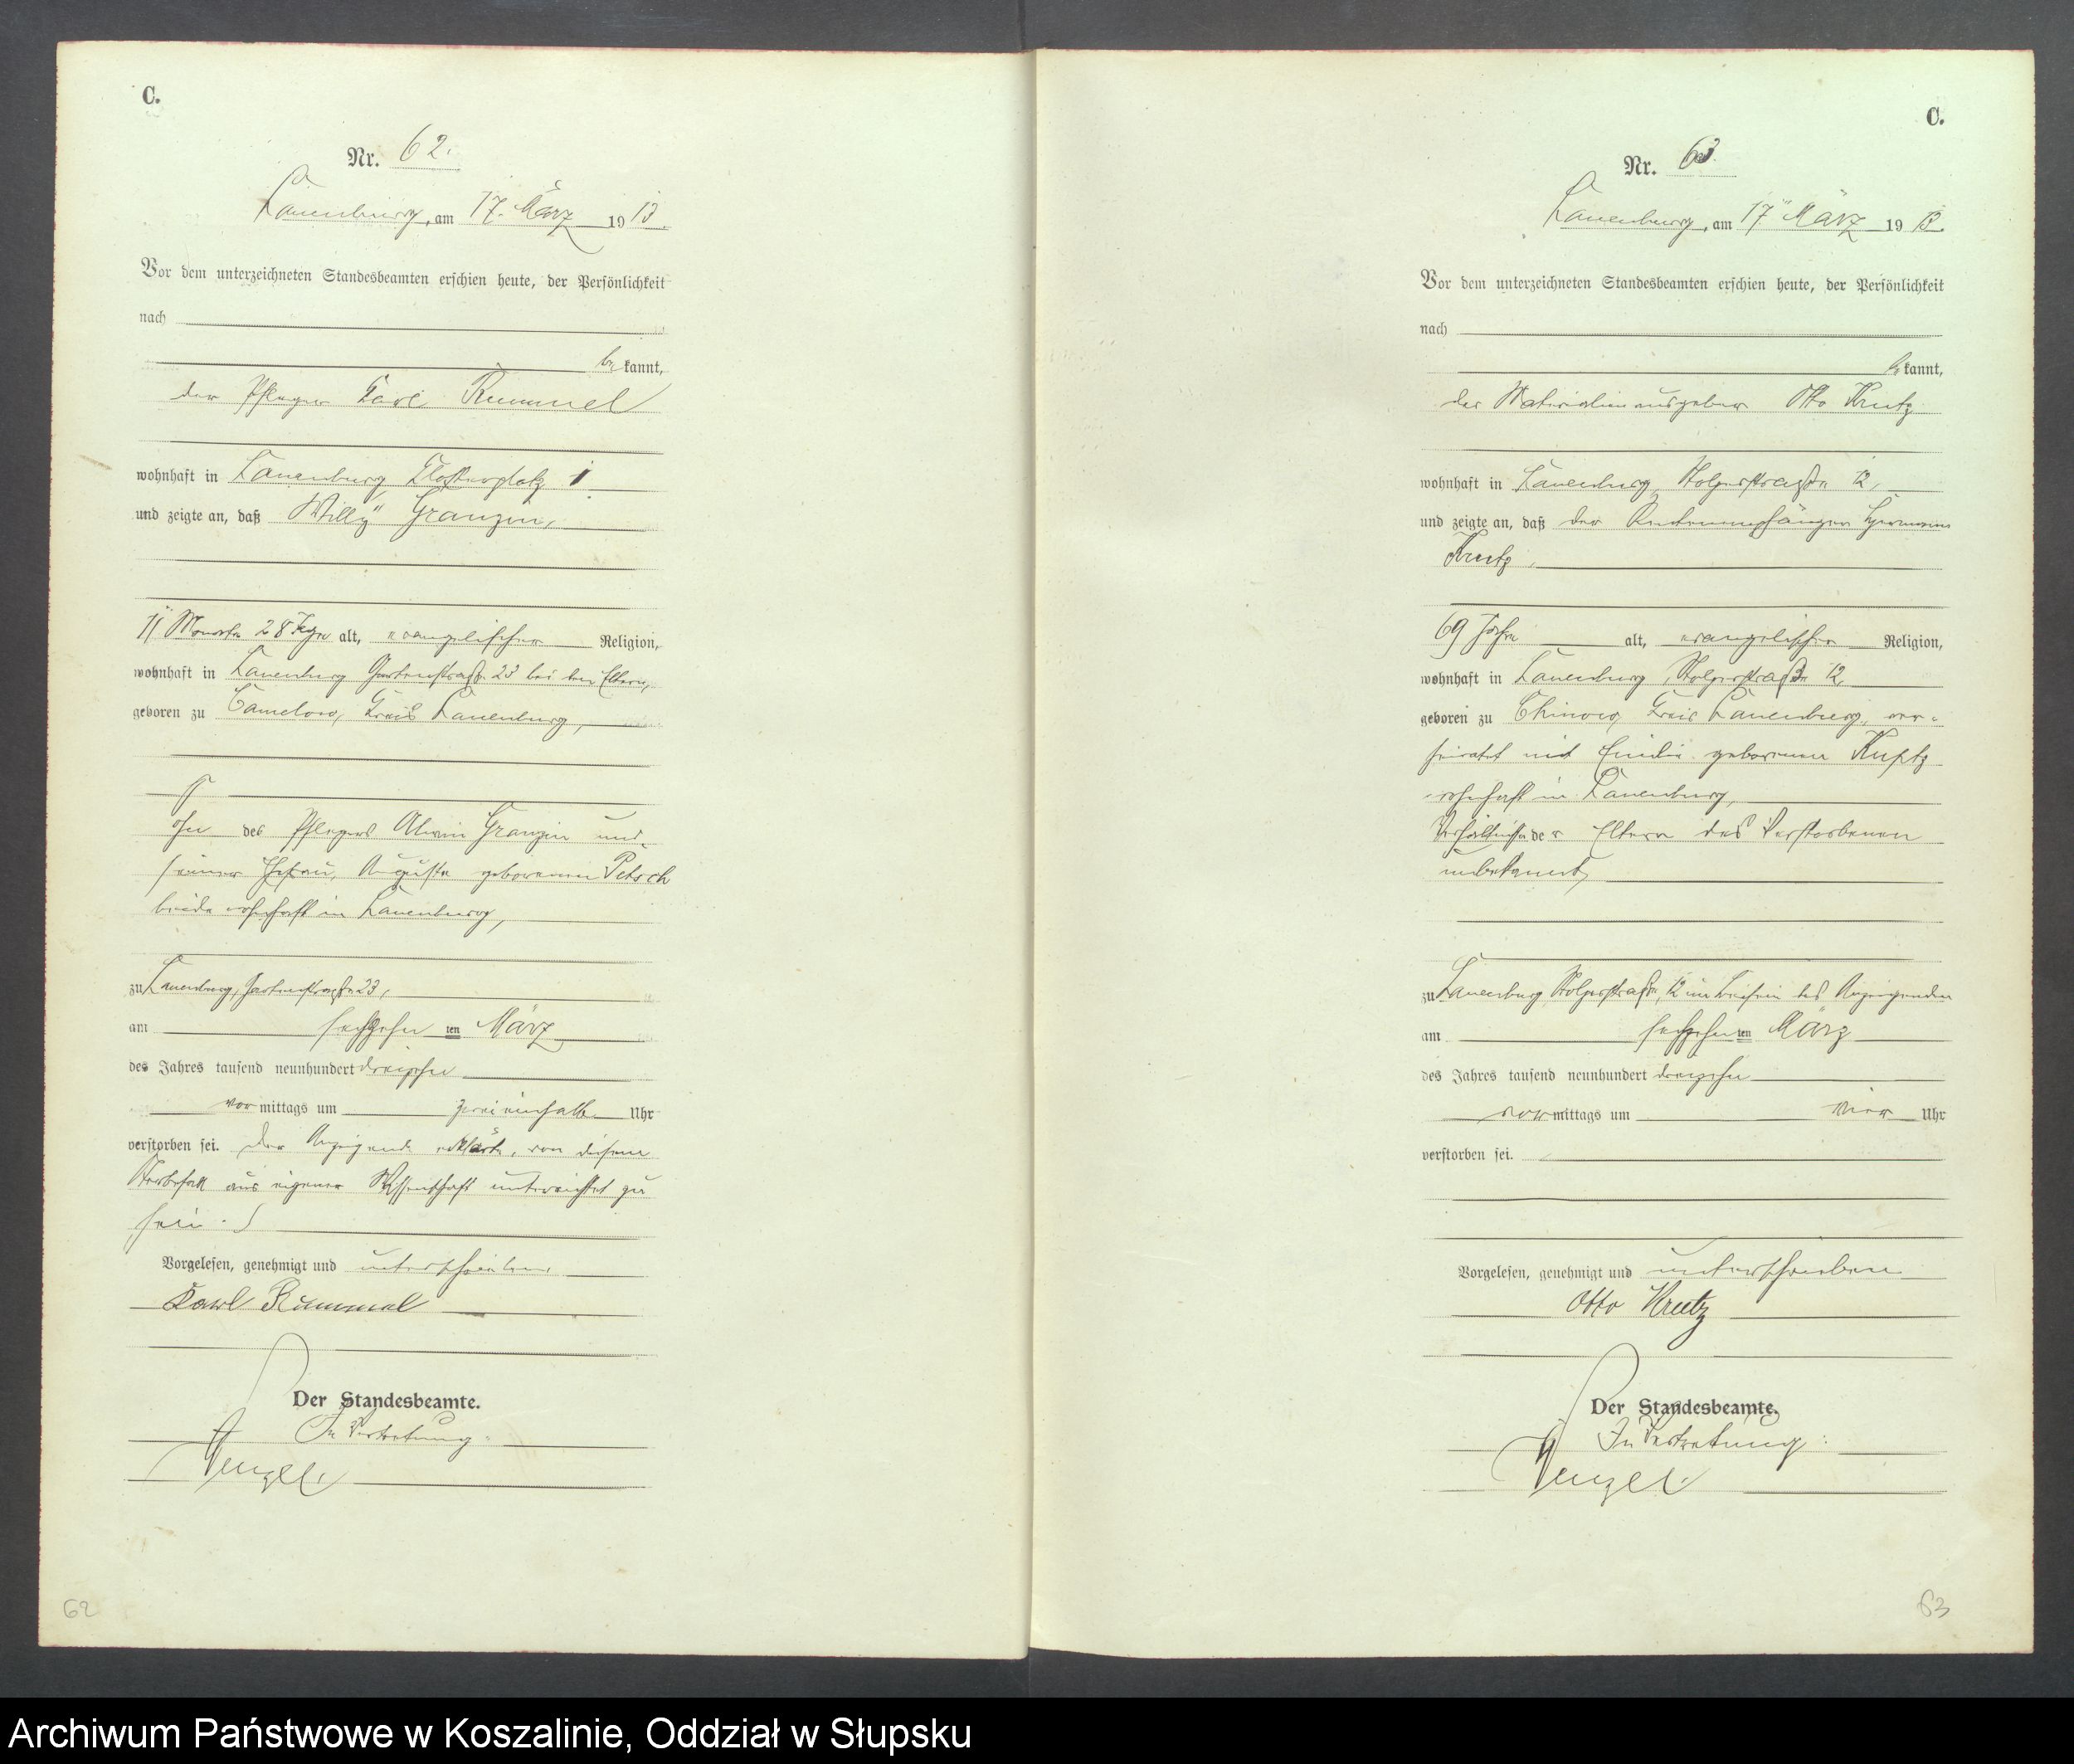 C.
Nr. 62.
Lauenburg, am 17. März 1913.
Vor dem unterzeichneten Standesbeamten erschien heute, der Persönlichkeit
nach
be kannt,
der Pfleger Karl Rummel
wohnhaft in Lauenburg Klosterplatz 1
und zeigte an, daß Willy Granzin,
11 Monate 28 Tage alt, evangelischer Religion,
wohnhaft in Lauenburg Gartenstraße 23 bei den Eltern,
geboren zu Camelow, Kreis Lauenburg,
S
ohn des Pflegers Alwin Granzin und
seiner Ehefrau, Auguste geborenen Petsch
beide wohnhaft in Lauenburg,
zu Lauenburg, Gartenstraße 23,
am sechzehn ten März
des Jahres tausend neunhundert dreizehn
vor mittags um zweieinhalb Uhr
verstorben sei. Der Anzeigende erklärte, von diesem
Sterbefall aus eigener Wissenschaft unterrichtet zu
sein.
Vorgelesen, genehmigt und unterschrieben
Karl Rummel
Der Standesbeamte.
In Vertretung:
Wenzel.
62
C.
Nr. 63.
Lauenburg, am 17. März 1913.
Vor dem unterzeichneten Standesbeamten erschien heute, der Persönlichkeit
nach
be kannt,
der Materialienausgeber Otto Kreutz
wohnhaft in Lauenburg, Stolperstraße 12,
und zeigte an, daß der Rentenempfänger Hermann
Kreutz,
69 Jahre alt, evangelischer Religion,
wohnhaft in Lauenburg, Stolperstraße 12
geboren zu Chinow, Kreis Lauenburg, ver-
heiratet mit Emilie geborenen
wohnhaft in Lauenburg,
Verhältnisse der Eltern des Verstorbenen
unbekannt,
zu Lauenburg, Stolperstraße, 12 im Beisein des Anzeigenden
am sechzehn ten März
des Jahres tausend neunhundert dreizehn
vor mittags um vier Uhr
verstorben sei.
Vorgelesen, genehmigt und unterschrieben
Otto Kreutz
Der Standesbeamte.
In Vertretung:
Wenzel.
63
Archiwum Państwowe w Koszalinie, Oddział w Słupsku